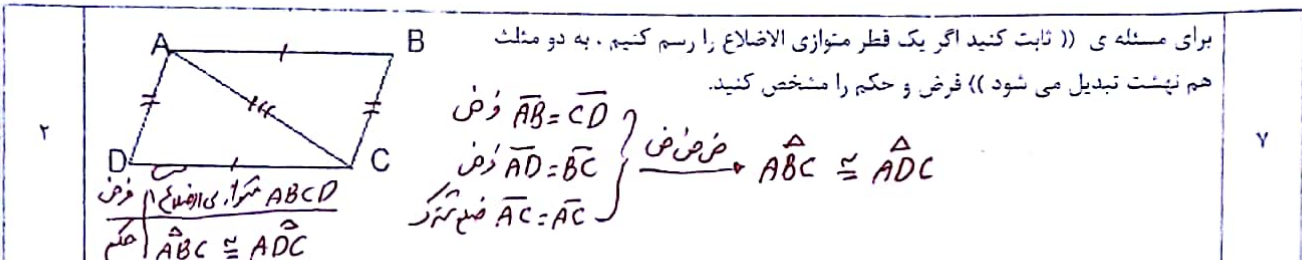 ۷
برای مسئله ی (( ثابت کنید اگر یک قطر متوازی الاضلاع را رسم کنیم . به دو مثلث
هم نهشت تبدیل می شود )) فرض و حکم را مشخص کنید.
۲
A B
D C
فرض AB = CD
فرض AD = BC
ضلع مشترک AC = AC
ض ض ض
ABC ≅ ADC
فرض | ABCD متوازی الاضلاع
حکم | ABC ≅ ADC